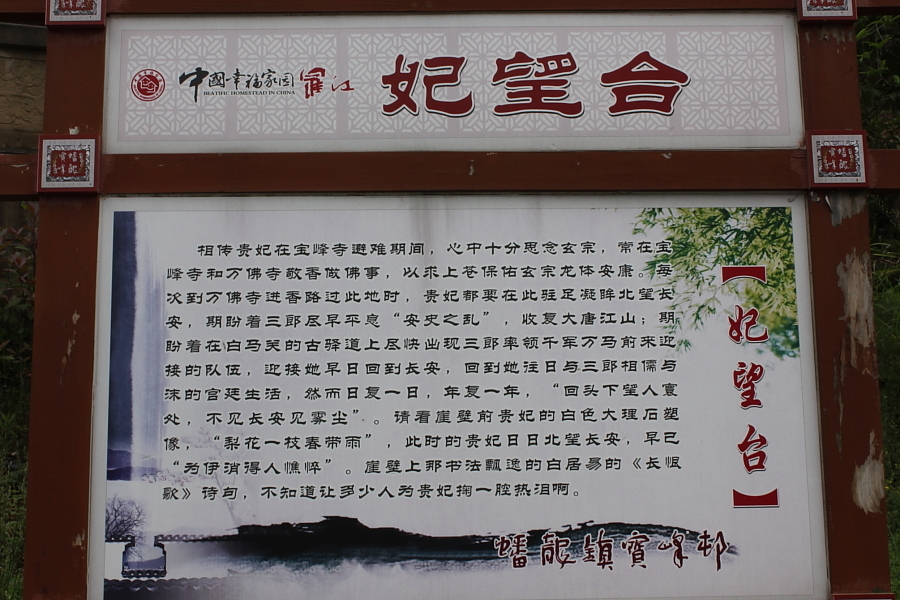 中國·幸福家园 羅江
BEATIFIC HOMESTEAD IN CHINA
妃望台
相传贵妃在宝峰寺避难期间，心中十分思念玄宗，常在宝
峰寺和万佛寺敬香做佛事，以求上苍保佑玄宗龙体安康。每
次到万佛寺进香路过此地时，贵妃都要在此驻足凝眸北望长
安，期盼着三郎尽早平息“安史之乱”，收复大唐江山；期
盼着在白马关的古驿道上尽快出现三郎率领千军万马前来迎
接的队伍，迎接她早日回到长安，回到她往日与三郎相儒与
沫的宫廷生活，然而日复一日，年复一年，“回头下望人寰
处，不见长安见雾尘”。。请看崖壁前贵妃的白色大理石塑
像，“梨花一枝春带雨”，此时的贵妃日日北望长安，早已
“为伊消得人憔悴”。崖壁上那书法飘逸的白居易的《长恨
歌》诗句，不知道让多少人为贵妃掬一腔热泪啊。
【妃望台】
蟠龍鎮寶峰邨